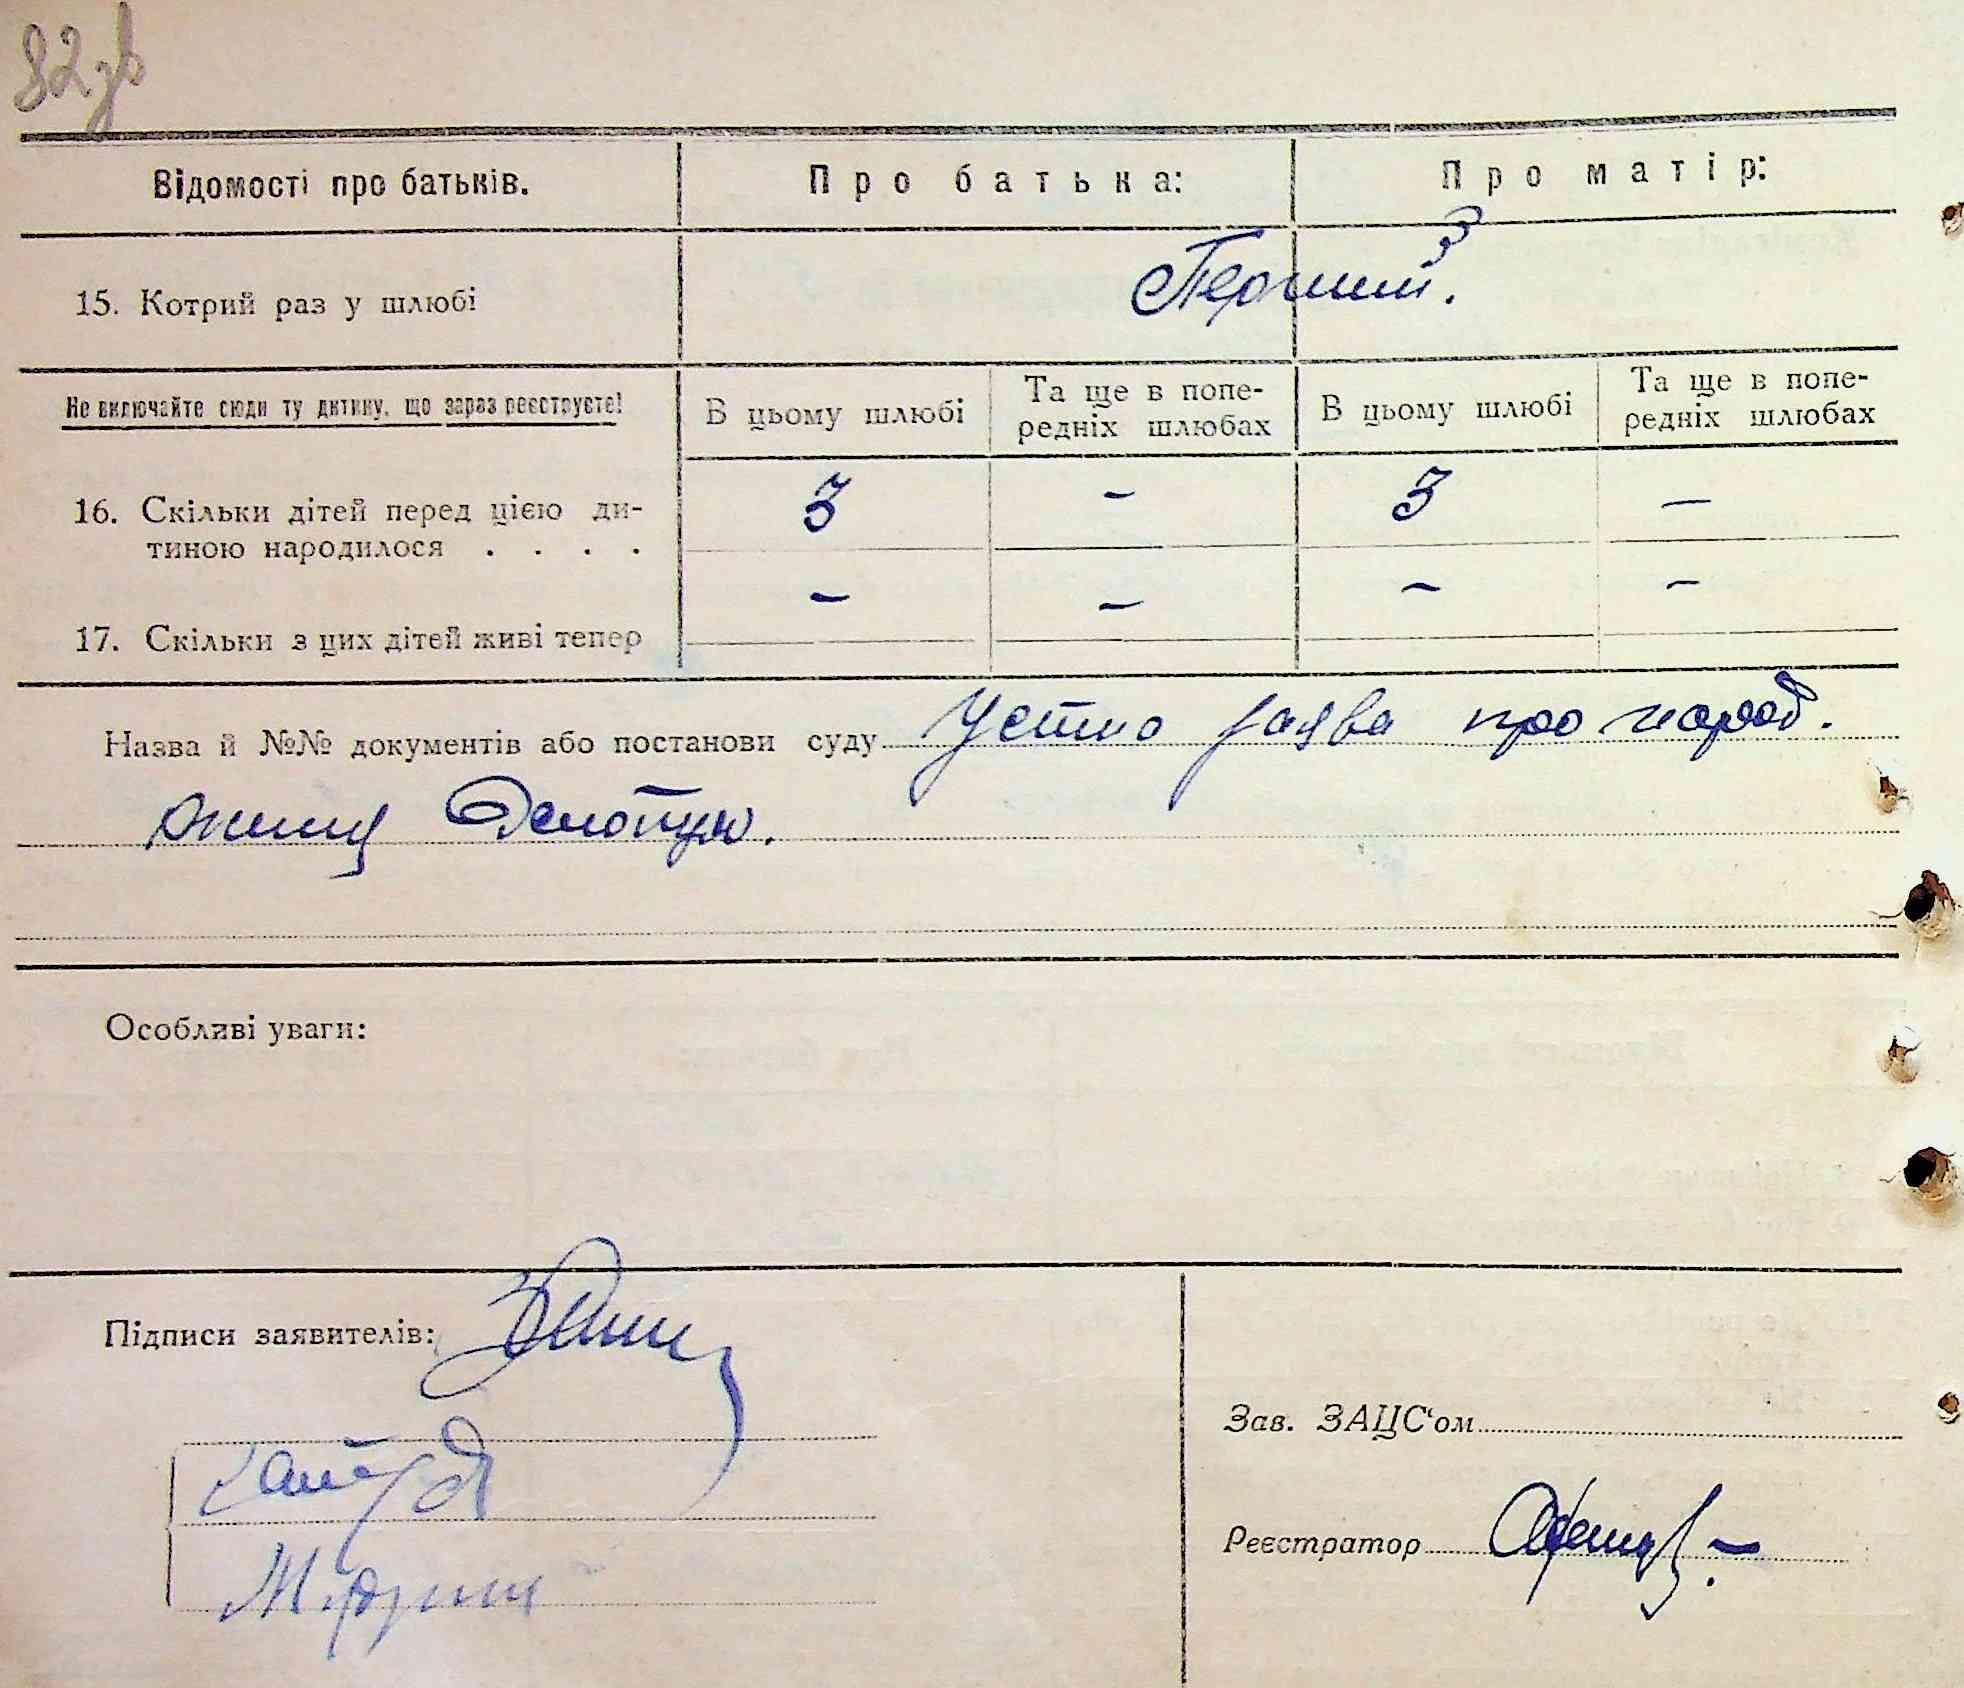 82зв
Відомості про батьків.
Про батька:
Про матір:
15. Котрий раз у шлюбі
Перший.
Не включайте сюди ту дитину, що зараз реєструєте!
В цьому шлюбі
Та ще в попе-
редніх шлюбах
В цьому шлюбі
Та ще в попе-
редніх шлюбах
16. Скільки дітей перед цією ди-
тиною народилося . . . .
3 - 3 -
17. Скільки з цих дітей живі тепер
- - - -
Назва й №№ документів або постанови суду Устно заява про народ.
Особливі уваги:
Підписи заявителів:
Зав. ЗАЦС‘ом
Реєстратор